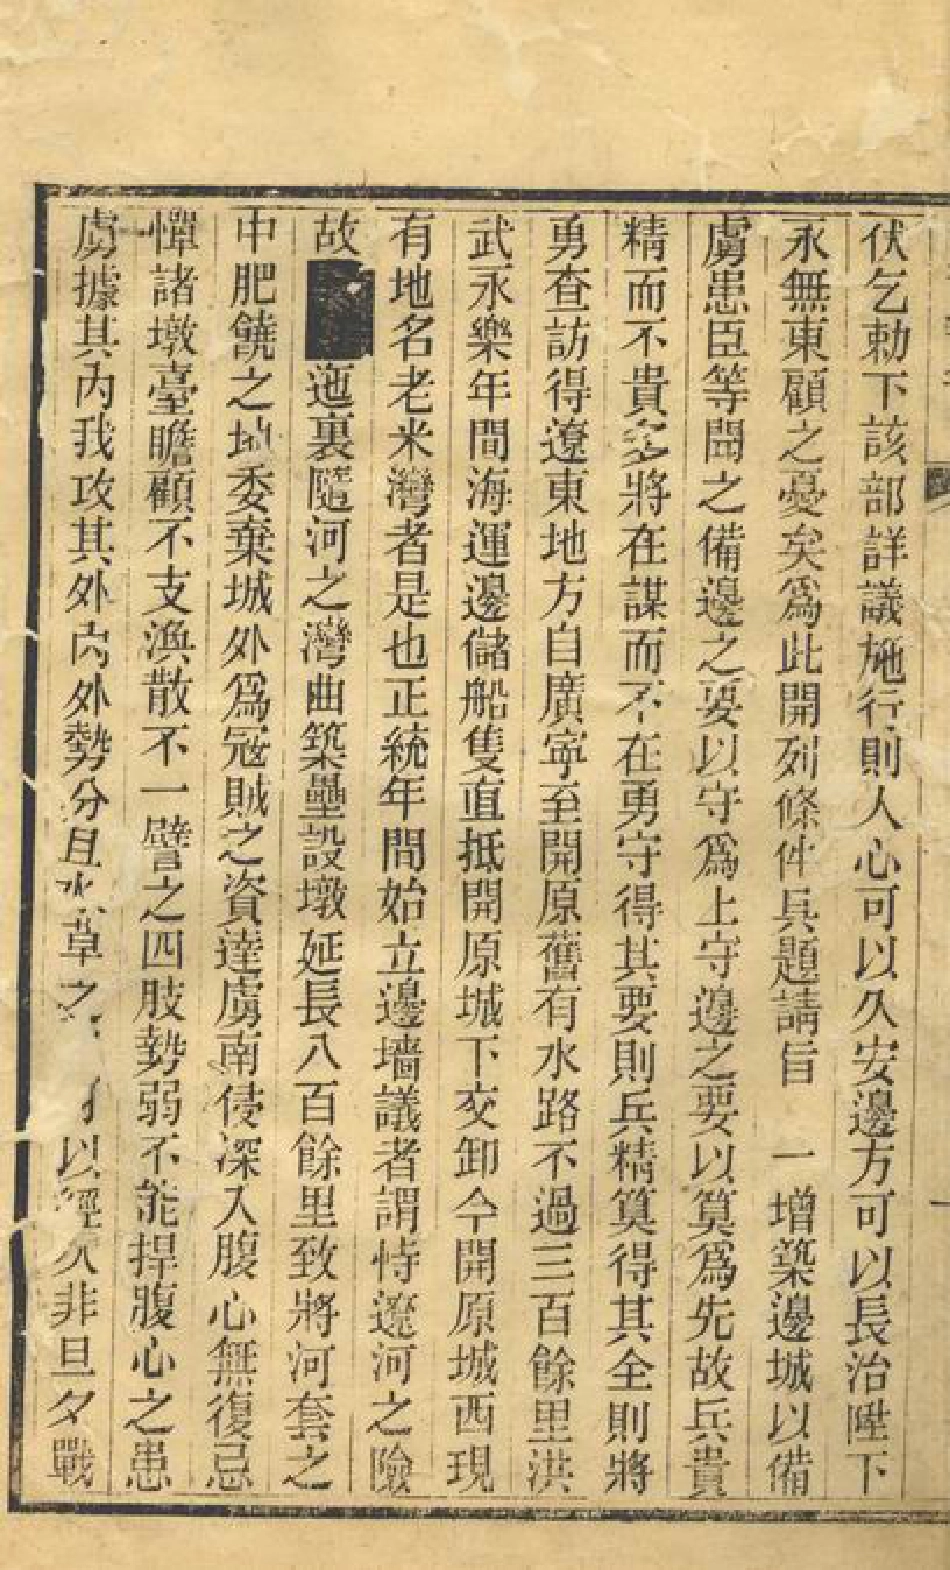 伏乞勅下該部詳議施行則人心可以久安邊方可以長治陛下
永無東顧之憂矣爲此開列條件具題請旨　一增築邊城以備
虜患臣等聞之備邊之要以守爲上守邊之要以筭爲先故兵貴
精而不貴多將在謀而不在勇守得其要則兵精筭得其全則將
勇查訪得遼東地方自廣寧至開原舊有水路不過三百餘里洪
武永樂年間海運邊儲船隻直抵開原城下交卸今開原城西現
有地名老米灣者是也正統年間始立邊墻議者謂恃遼河之險
故迤裏隨河之灣曲築壘設墩延長八百餘里致將河套之
中肥饒之地委棄城外爲冦賊之資達虜南侵深入腹心無復忌
憚諸墩臺瞻顧不支渙散不一譬之四肢勢弱不能捍腹心之患
虜據其內我攻其外內外勢分且水草之以經久非旦夕戰